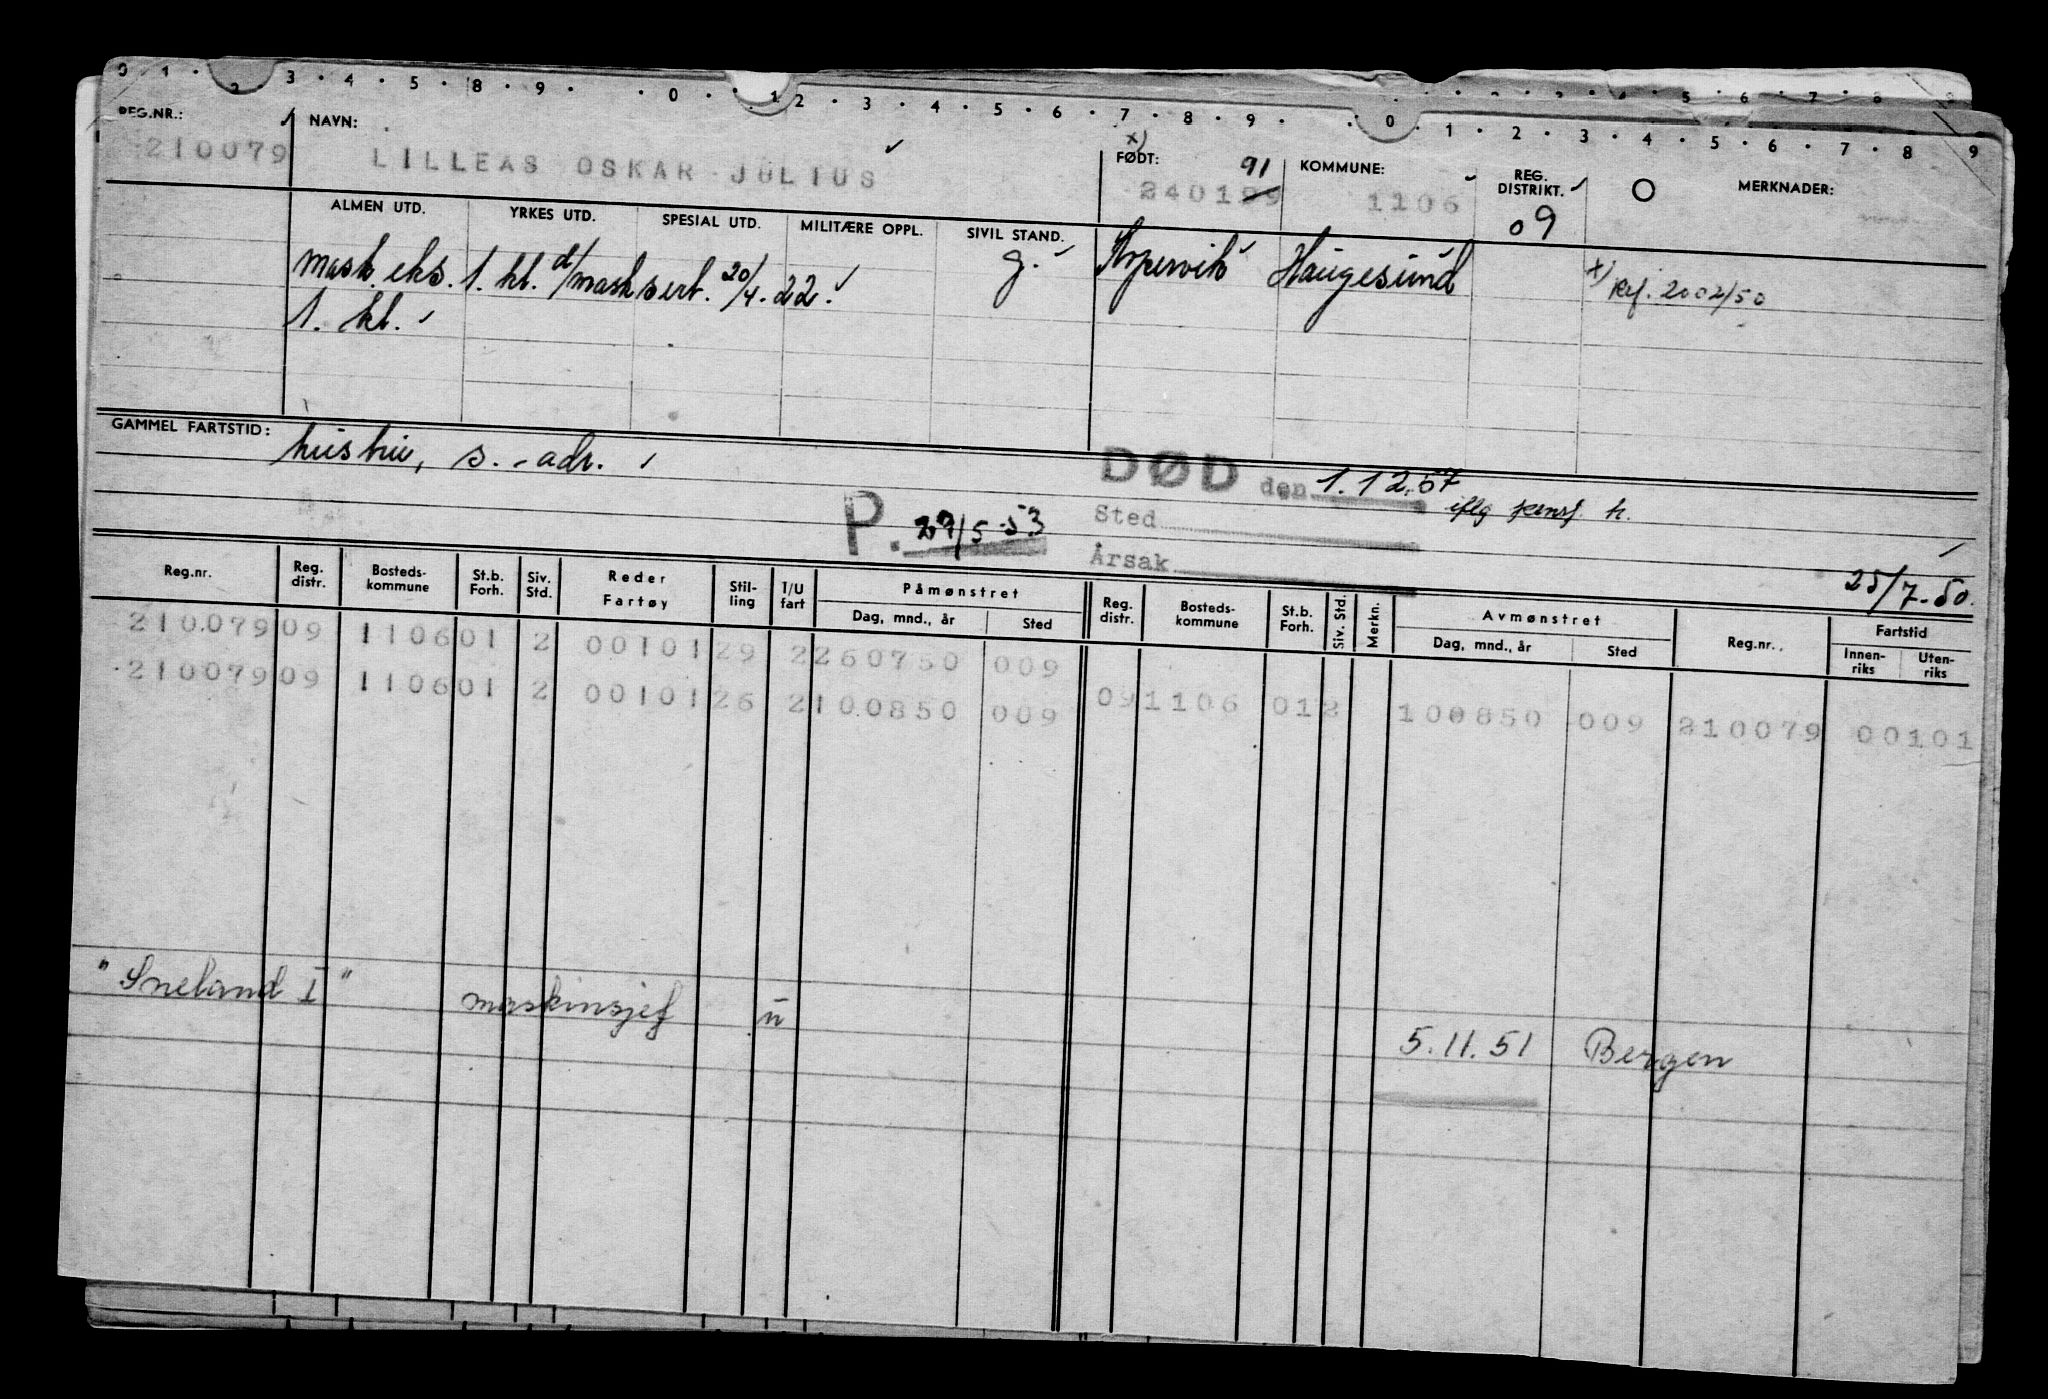 0 1 · 2 3 · 4 · 5 · 8 · 9 · · 0 · · 1 2 · 3 · 4 · 5 · 6 · 7 · 8 · 9 · · 0 · 1 · 2 · 3 · 4 · 5 · 6 · 7 · 8 9
REG.NR.: NAVN: x) FØDT: KOMMUNE: REG. DISTRIKT. O MERKNADER:
210079 LILLEAS OSKAR JULIUS 91 240199 1106 09
ALMEN UTD. YRKES UTD. SPESIAL UTD. MILITÆRE OPPL. SIVIL STAND.
mask. eks. 1. kl. d/mask sert. 20/4.22. g. Kopervik Haugesund x) Ref. 2002/50
1. kl.
GAMMEL FARTSTID: hustru, s. - adr.
DØD den 1.12.57
iflg pensj. k.
P. 29/5-53 Sted
Årsak
25/7-50.
Reg.nr. Reg. distr. Bosteds- kommune St.b. Forh. Siv. Std. Reder Fartøy Stil- ling I/U fart Påmønstret Dag, mnd., år Sted Reg. distr. Bosteds- kommune St.b. Forh. Siv. Std. Merkn. Avmønstret Dag, mnd., år Sted Reg.nr. Fartstid Innen- riks Uten- riks
210079 09 1106 01 2 00101 29 2 260750 009
210079 09 1106 01 2 00101 26 2 100850 009 09 1106 01 2 100850 009 210079 00101
"Sneland I" maskinsjef u 5.11.51 Bergen